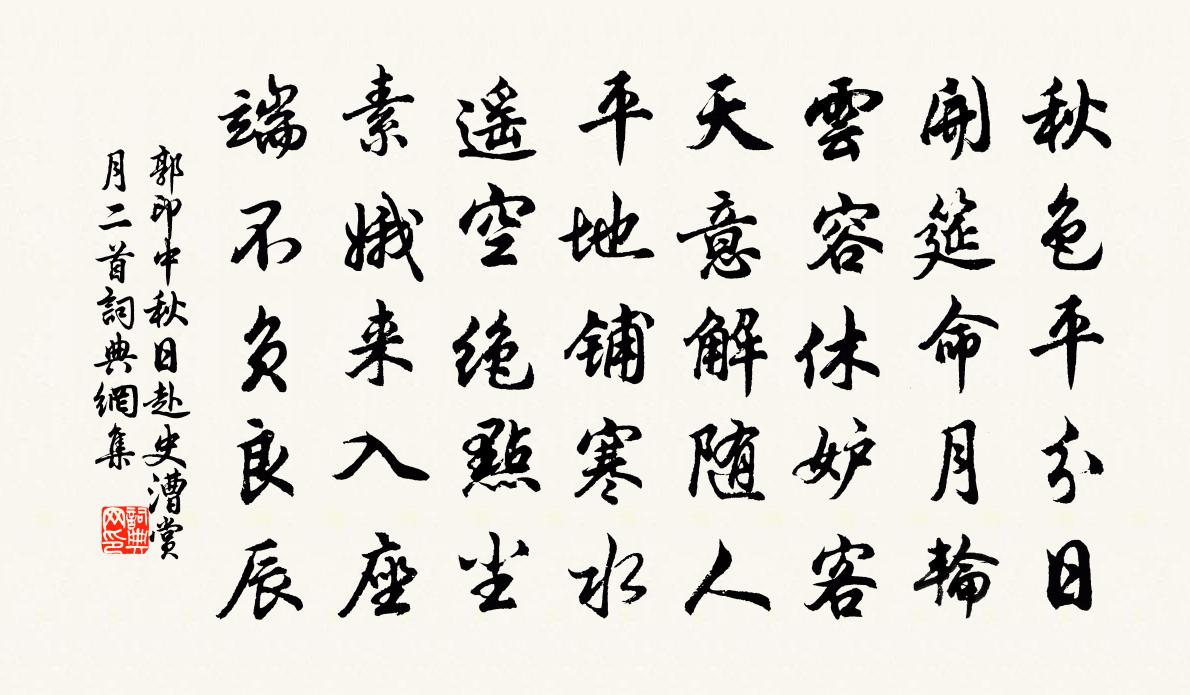 秋色平分日
開筵命月輪
雲容休妒客
天意解随人
平地鋪寒水
遥空绝點尘
素娥来入座
端不负良辰
郭印中秋日赴史漕賞
月二首詞典網集
詞典网印